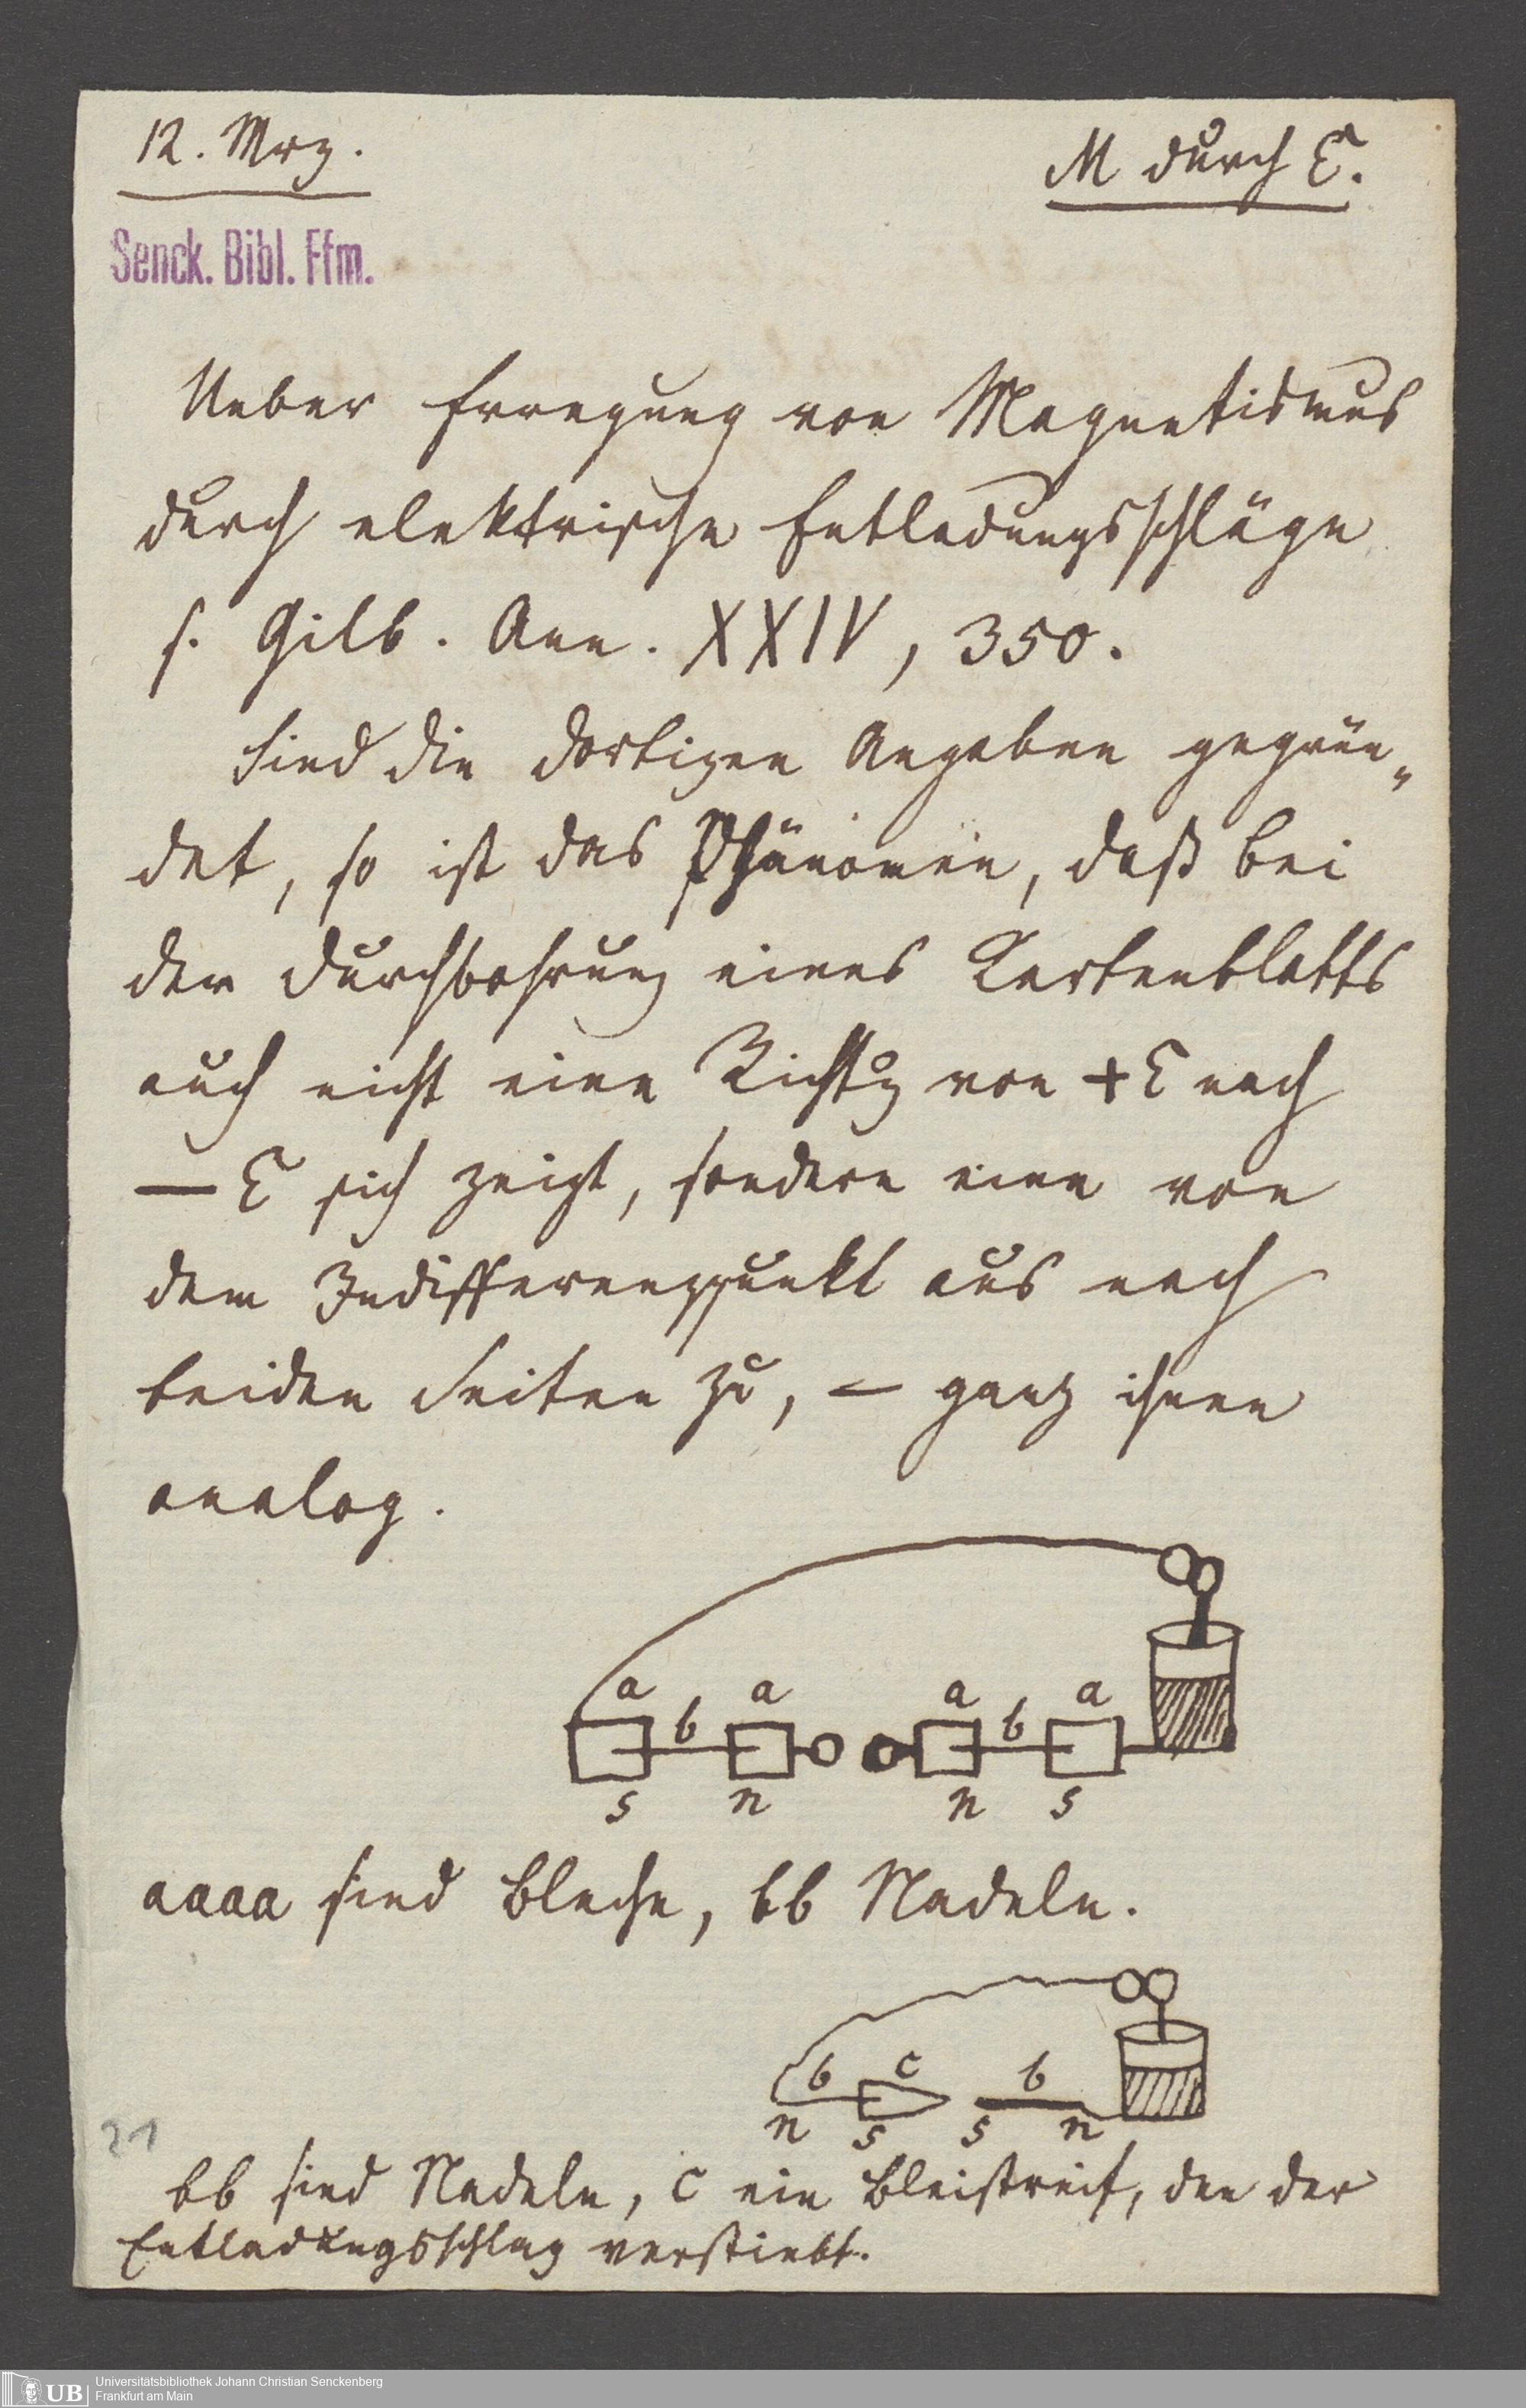 12. Mrz.
M durch E.
Senck. Bibl. Ffm.
Ueber Erregung von Magnetismus
durch elektrische Entladungsschläge
s. Gilb. Ann. XXIV, 350.
Sind die dortigen Angaben gegrün„
det, so ist das Phänomen, daß bei
der Durchbohrung eines Kartenblatts
auch nicht eine Richtg von +E nach
— E sich zeigt, sondern eine von
dem Indifferenzpunkt aus nach
beiden Seiten zu, — ganz ihnen
analog.
a b a a b a
s n n s
aaaa sind Bleche, bb Nadeln.
b c b
n s s n
21
bb sind Nadeln, c ein Bleistreif, den der
Entladungsschlag verstiebt.
UB
Universitätsbibliothek Johann Christian Senckenberg
Frankfurt am Main